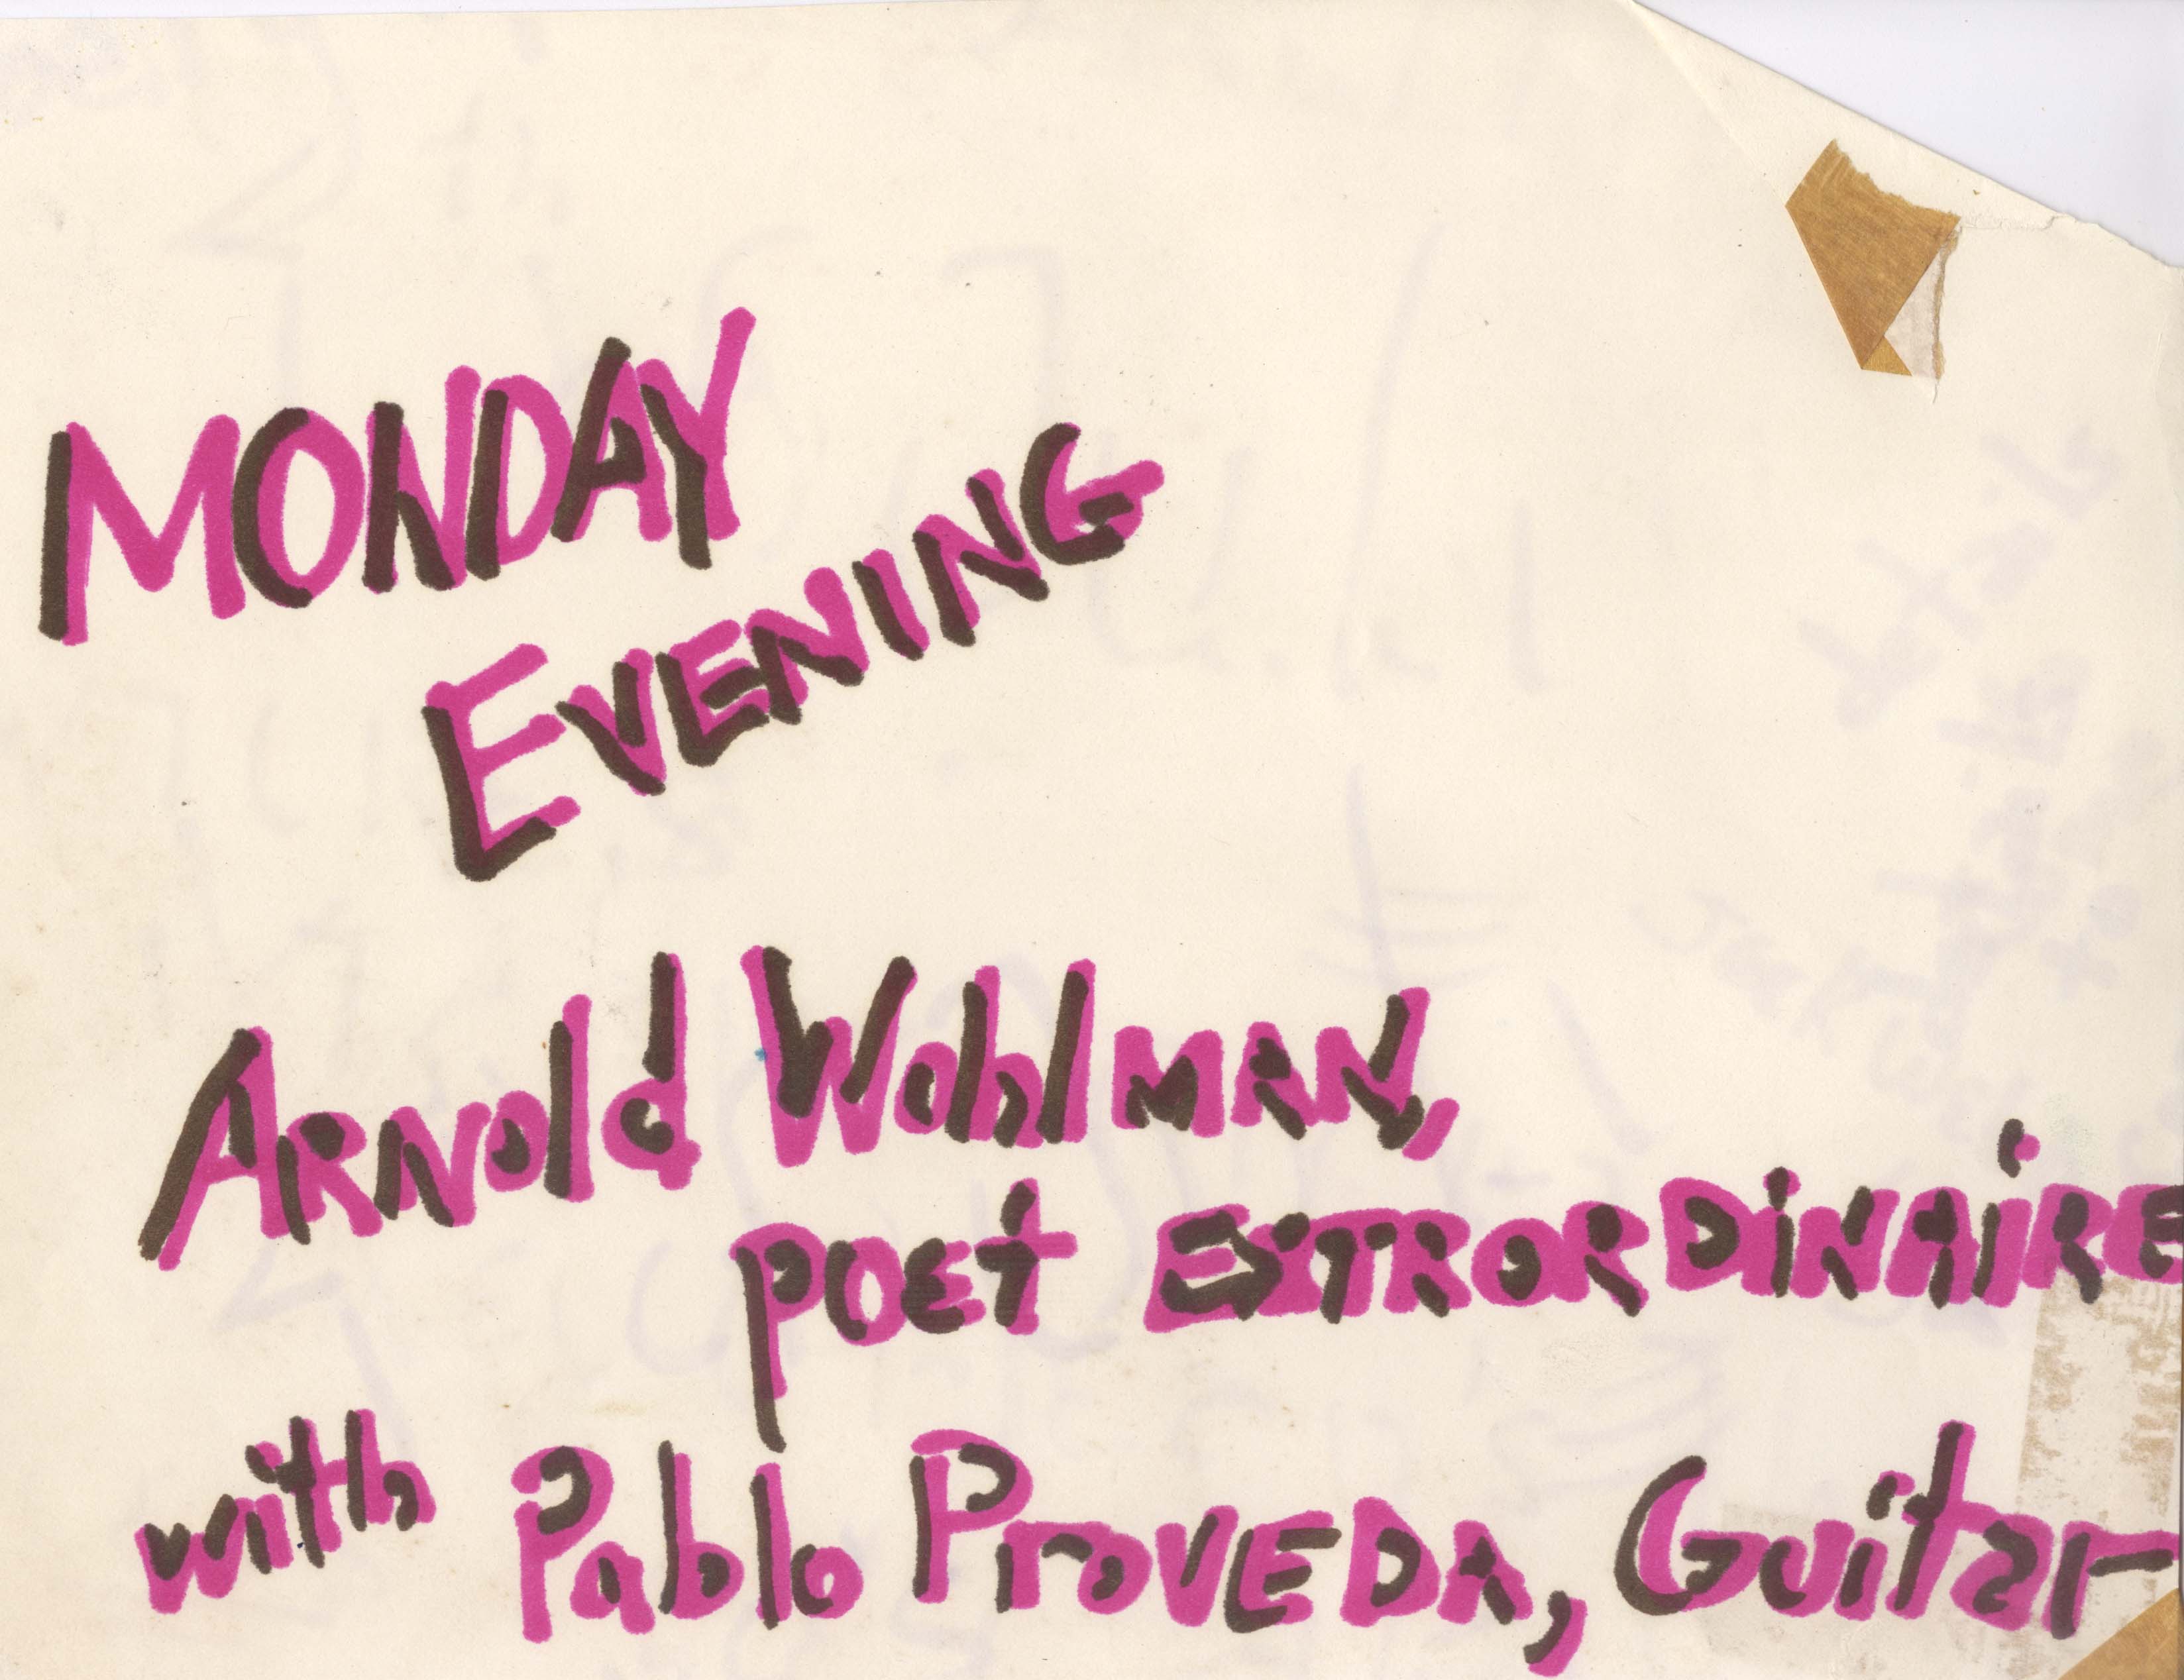 MONDAY
EVENING
ARNold WohlMAN,
poet EXTRORDiNAiRE
with Pablo ProVEDA, Guitar